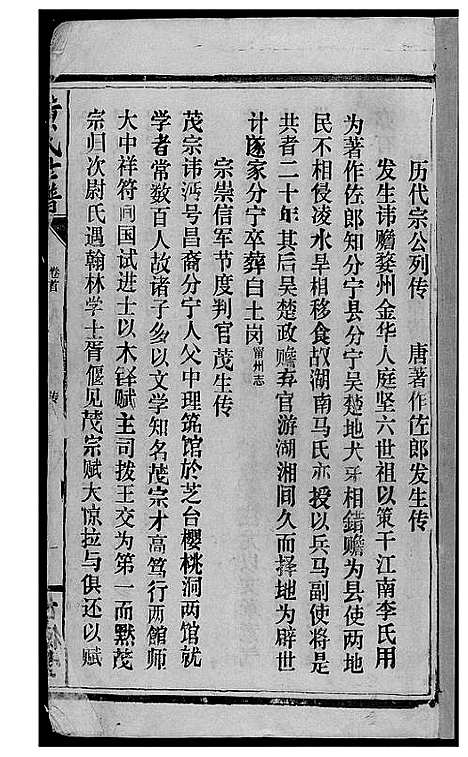 历代宗公列传　唐著作佐郎发生传
发生讳赡婺州金华人庭坚六世祖以策干江南李氏用
为著作佐郎知分宁县分宁吴楚地犬牙相错赡为县使两地
民不相侵凌水旱相移食故湖南马氏亦授以兵马副使将是
共者二十年其后吴楚政赡弃官游湖湘间久而择地为辟世
计遂家分宁卒葬白土岗甯州志
宗崇信军节度判官茂生传
茂宗讳号昌裔分宁人父中理筑馆於芝台樱桃洞两馆就
学者常数百人故诸子多以文学知名茂宗才高笃行两馆师
大中祥符间国试进士以木铎赋主司拨王交为第一而黙茂
宗归次尉氏遇翰林学士胥偃见茂宗赋大惊拉与俱还以赋
黄氏世谱
卷首
传